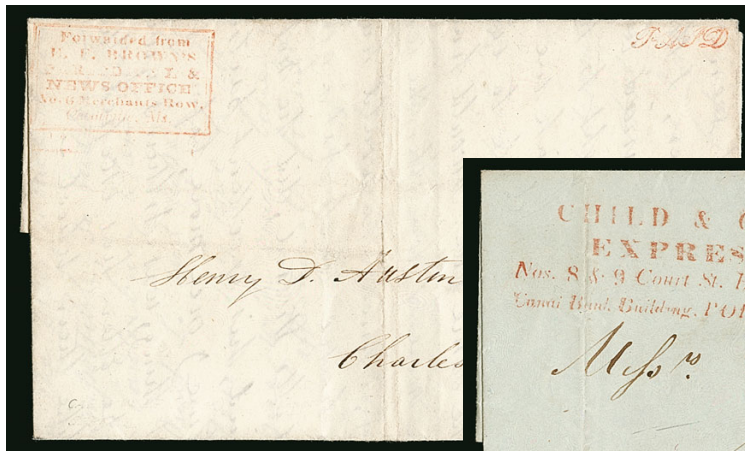 Forwarded from
BROWN'S
&
NEWS OFFICE
No. 6 Merchants Row,
PAID
Henry D. Austin
Charles
CHILD & C
EXPRES
Nos. 8 & 9 Court St.
Canal Bank Building,
Messrs.